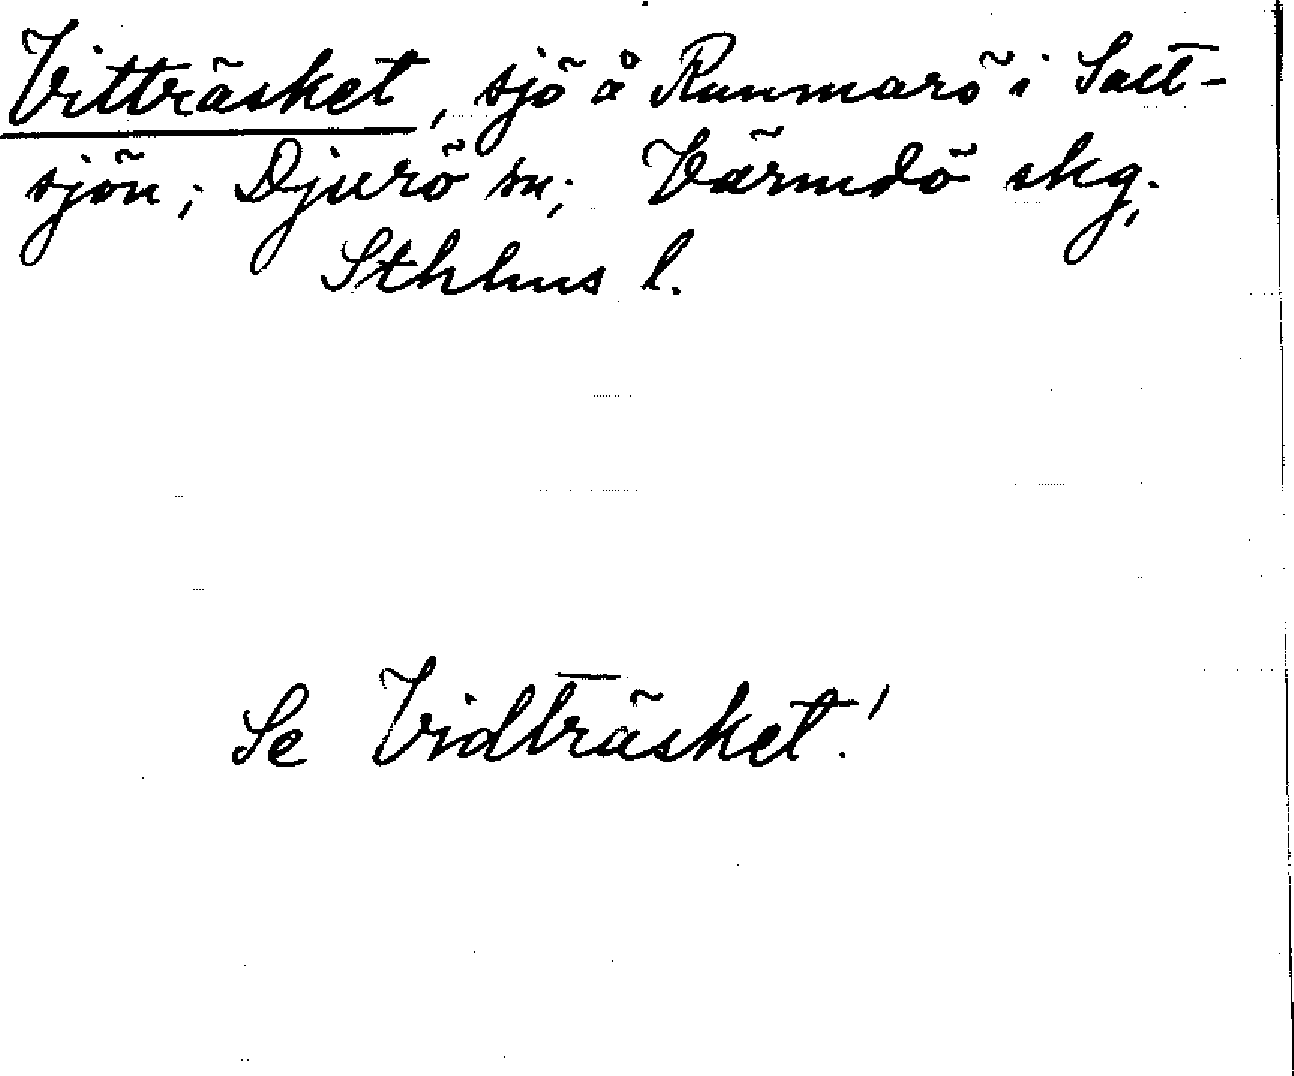 Vitträsket, sjö å Runmarö i Salt-
sjön; Djurö sn; Värmdö skg;
Sthlms l.
Se Vidträsket!